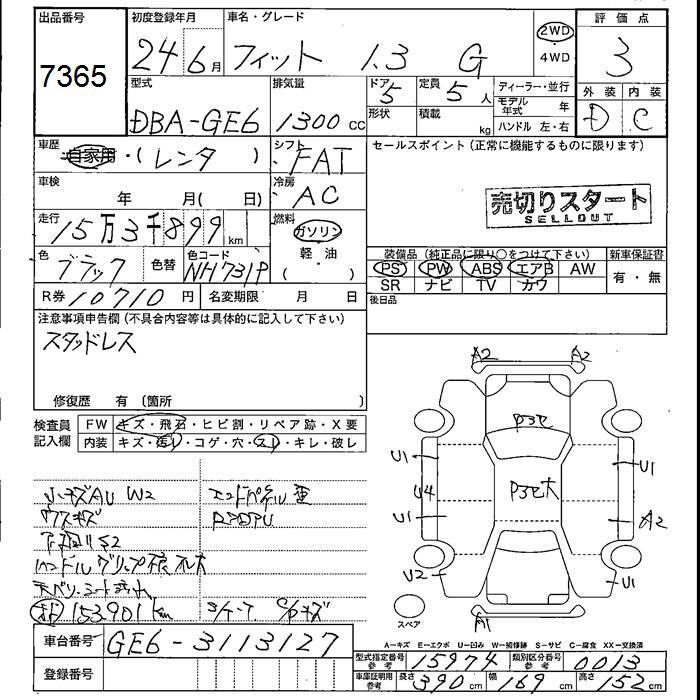 出品番号
7365
初度登録年月
24 6月
車名・グレード
フィット 1.3 G
2WD
4WD
評価点
3
外装 内装
D C
型式
DBA-GE6
排気量
1300 CC
ドア
5
形状
定員
5人
積載
kg
ディーラー・並行
モデル年式 年
ハンドル 左・右
車歴
自家用・(レンタ )
シフト
FAT
車検
年 月( 日)
冷房
AC
走行
15万3千899 km
燃料
ガソリン
軽・油
( )
色
ブラック
色替
色コード
NH731P
R券 10710 円
名変期限 月 日
セールスポイント (正常に機能するものに限ります)
売切りスタート
SELLOUT
装備品 (純正品に限り○をつけて下さい)
PS PW ABS エアB AW
SR ナビ TV カワ
新車保証書
有・無
後日品
注意事項申告欄 (不具合内容等は具体的に記入して下さい)
スタッドレス
修復歴 有 (箇所 )
検査員記入欄
FW キズ・飛石・ヒビ割・リペア跡・X要
内装 キズ・汚れ・コゲ・穴・スレ・キレ・破レ
小キズAU W2
ウスキズ
S2
ハンドル グリップ
153.901Km
エンドパネル歪
A2 A2
U1
U4
U1
U2
U1
A2
U1
A1
スペア
車台番号
GE6-3113127
登録番号
A-キズ E-エクボ U-凹み W-補修跡 S-サビ C-腐食 XX-交換済
型式指定番号 参考
15974
類別区分番号 参考
0013
車庫証明用 参考
長さ 390 cm
幅 169 cm
高さ 152 cm